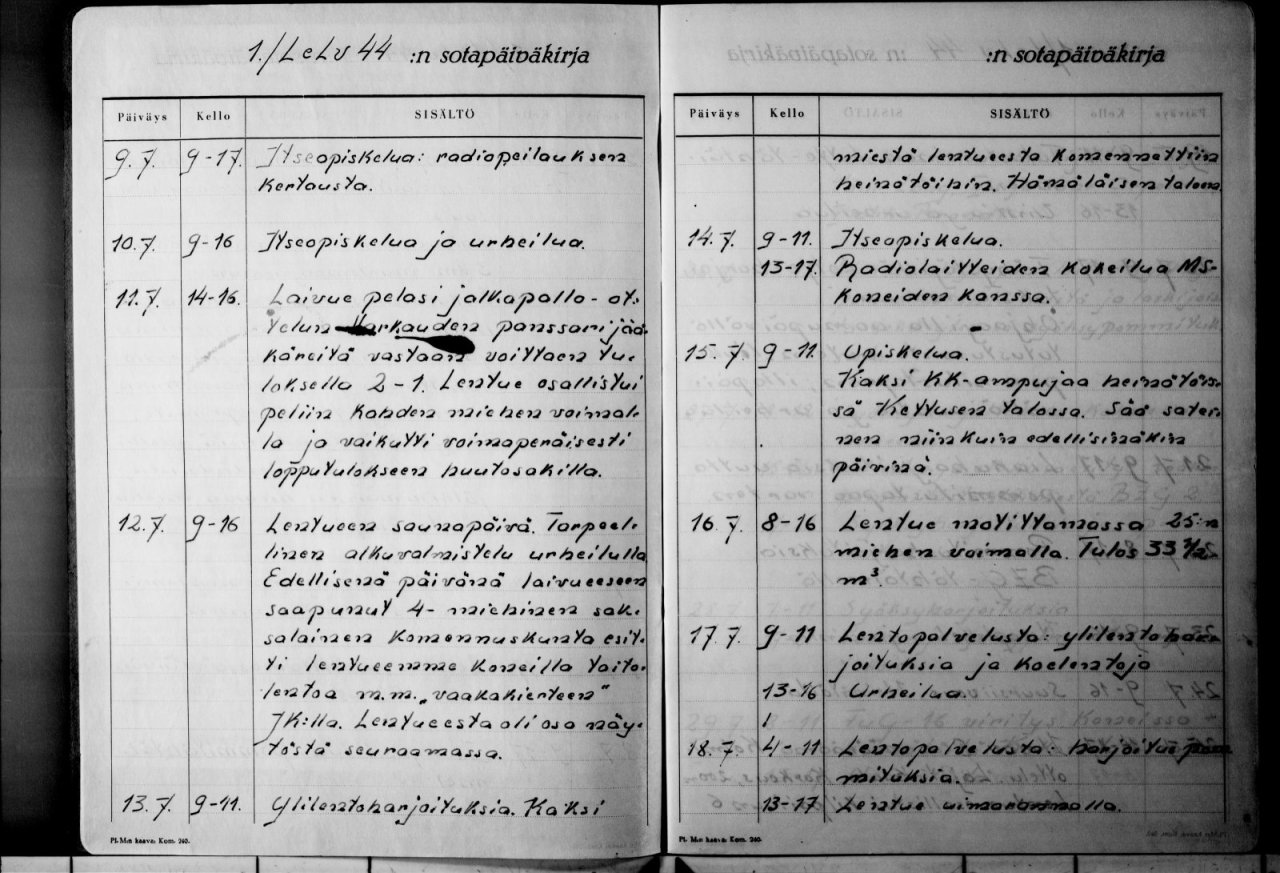 1./LeLv 44 :n sotapäiväkirja
Päiväys Kello SISÄLTÖ
9.7. 9-17. Itseopiskelua: radiopeilauksen
kertausta.
10.7. 9-16 Itseopiskelua ja urheilua.
11.7. 14-16. Laivue pelasi jalkapallo-ot-
telun Varkauden panssarijää-
käreitä vastaan voittaen tu-
loksella 2-1. Lentue osallistui
peliin kahden miehen voimal-
la ja vaikutti voimaperäisesti
lopputulokseen huutosakilla.
12.7. 9-16 Lentueen saunapäivä. Tarpeel-
linen alkuvalmistelu urheilulla
Edellisenä päivänä laivueeseen
saapunut 4-miehinen sak-
salainen komennuskunta esit-
ti lentueemme koneilla taito-
lentoa m.m. „vaakakierteen"
JK:lla. Lentueesta oli osa näy-
töstä seuraamassa.
13.7. 9-11. Ylilentoharjoituksia. Kaksi
Pl. M:n kaava: Kom. 260.
:n sotapäiväkirja
Päiväys Kello SISÄLTÖ
miestä lentueesta komennettiin
heinätöihin. Hämäläisen taloon.
14.7. 9-11. Itseopiskelua.
13-17. Radiolaitteiden kokeilua MS-
koneiden kanssa.
15.7. 9-11. Opiskelua.
Kaksi KK-ampujaa heinätöis-
sä Kettusen talossa. Sää satei-
nen niinkuin edellisinäkin
päivinä.
16.7. 8-16 Lentue motittamassa 25:n
miehen voimalla. Tulos 33 ½
m³.
17.7. 9-11 Lentopalvelusta: ylilentohar-
joituksia ja koelentoja
13-16 Urheilua.
18.7. 4-11 Lentopalvelusta: harjoituspom-
mituksia.
13-17. Lentue uimarannalla.
Pl. M:n kaava: Kom. 260.